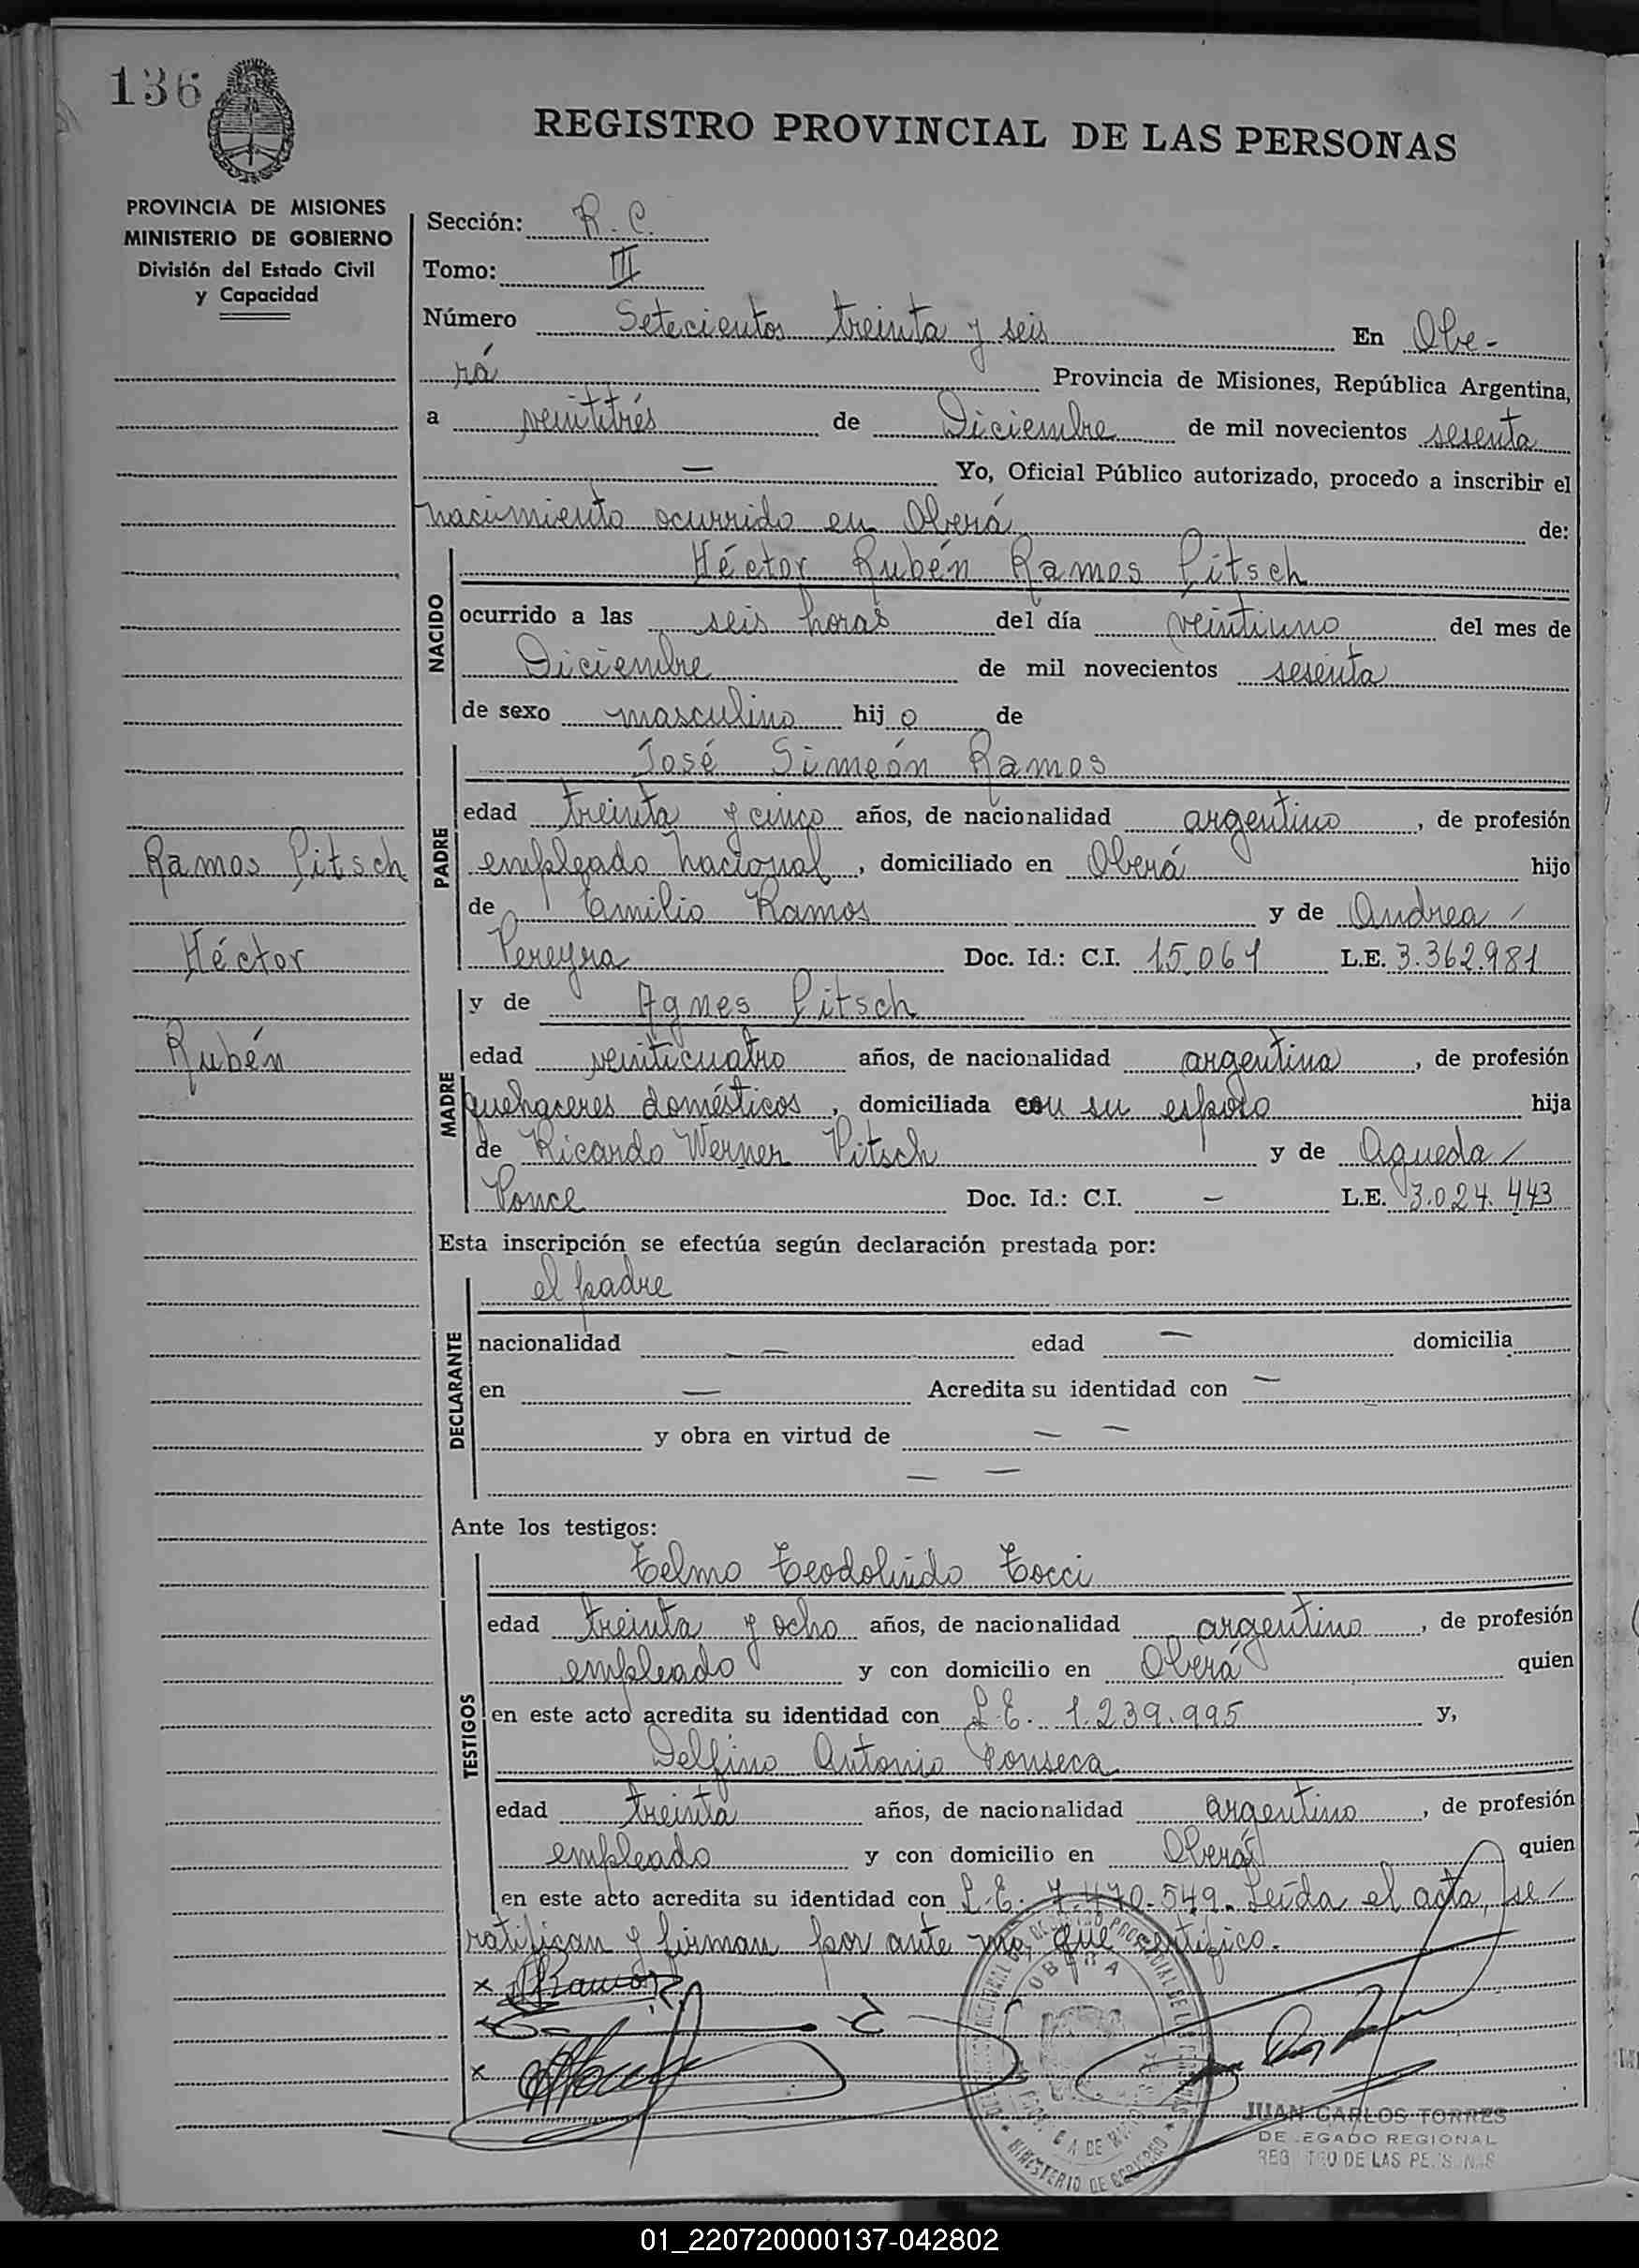 136
REGISTRO PROVINCIAL DE LAS PERSONAS
PROVINCIA DE MISIONES
MINISTERIO DE GOBIERNO
División del Estado Civil
y Capacidad
Sección: R. C.
Tomo: III
Número Setecientos treinta y seis En Obe-
rá Provincia de Misiones, República Argentina,
a veintitrés de Diciembre de mil novecientos sesenta
— Yo, Oficial Público autorizado, procedo a inscribir el
nacimiento ocurrido en Oberá de:
NACIDO
Héctor Rubén Ramos Pitsch
ocurrido a las seis horas del día veintiuno del mes de
Diciembre de mil novecientos sesenta
de sexo masculino hijo de
PADRE
José Simeón Ramos
edad treinta y cinco años, de nacionalidad argentino, de profesión
Ramos Pitsch
empleado nacional, domiciliado en Oberá hijo
de Emilio Ramos y de Andrea /
Héctor
Pereyra Doc. Id.: C.I. 15.061 L.E. 3.362.981
MADRE
y de Agnes Pitsch
Rubén
edad veinticuatro años, de nacionalidad argentina, de profesión
quehaceres domésticos, domiciliada con su esposo hija
de Ricardo Werner Pitsch y de Agueda /
Ponce Doc. Id.: C.I. — L.E. 3.024.443
Esta inscripción se efectúa según declaración prestada por:
DECLARANTE
el padre
nacionalidad — — edad — domicilia
en — Acredita su identidad con —
y obra en virtud de — —
— —
Ante los testigos:
TESTIGOS
Telmo Teodolindo Tocci
edad treinta y ocho años, de nacionalidad argentino, de profesión
empleado y con domicilio en Oberá quien
en este acto acredita su identidad con L.E. 1.239.995 y,
Delfino Antonio Fonseca
edad treinta años, de nacionalidad argentino, de profesión
empleado y con domicilio en Oberá quien
en este acto acredita su identidad con L.E. 7.470.549. Leída el acta, se /
ratifican y firman por ante mí, que certifico.
x Ramos
x
OBERA
MINISTERIO DE GOBIERNO
JUAN CARLOS TORRES
DELEGADO REGIONAL
REGISTRO DE LAS PERSONAS
01_220720000137-042802